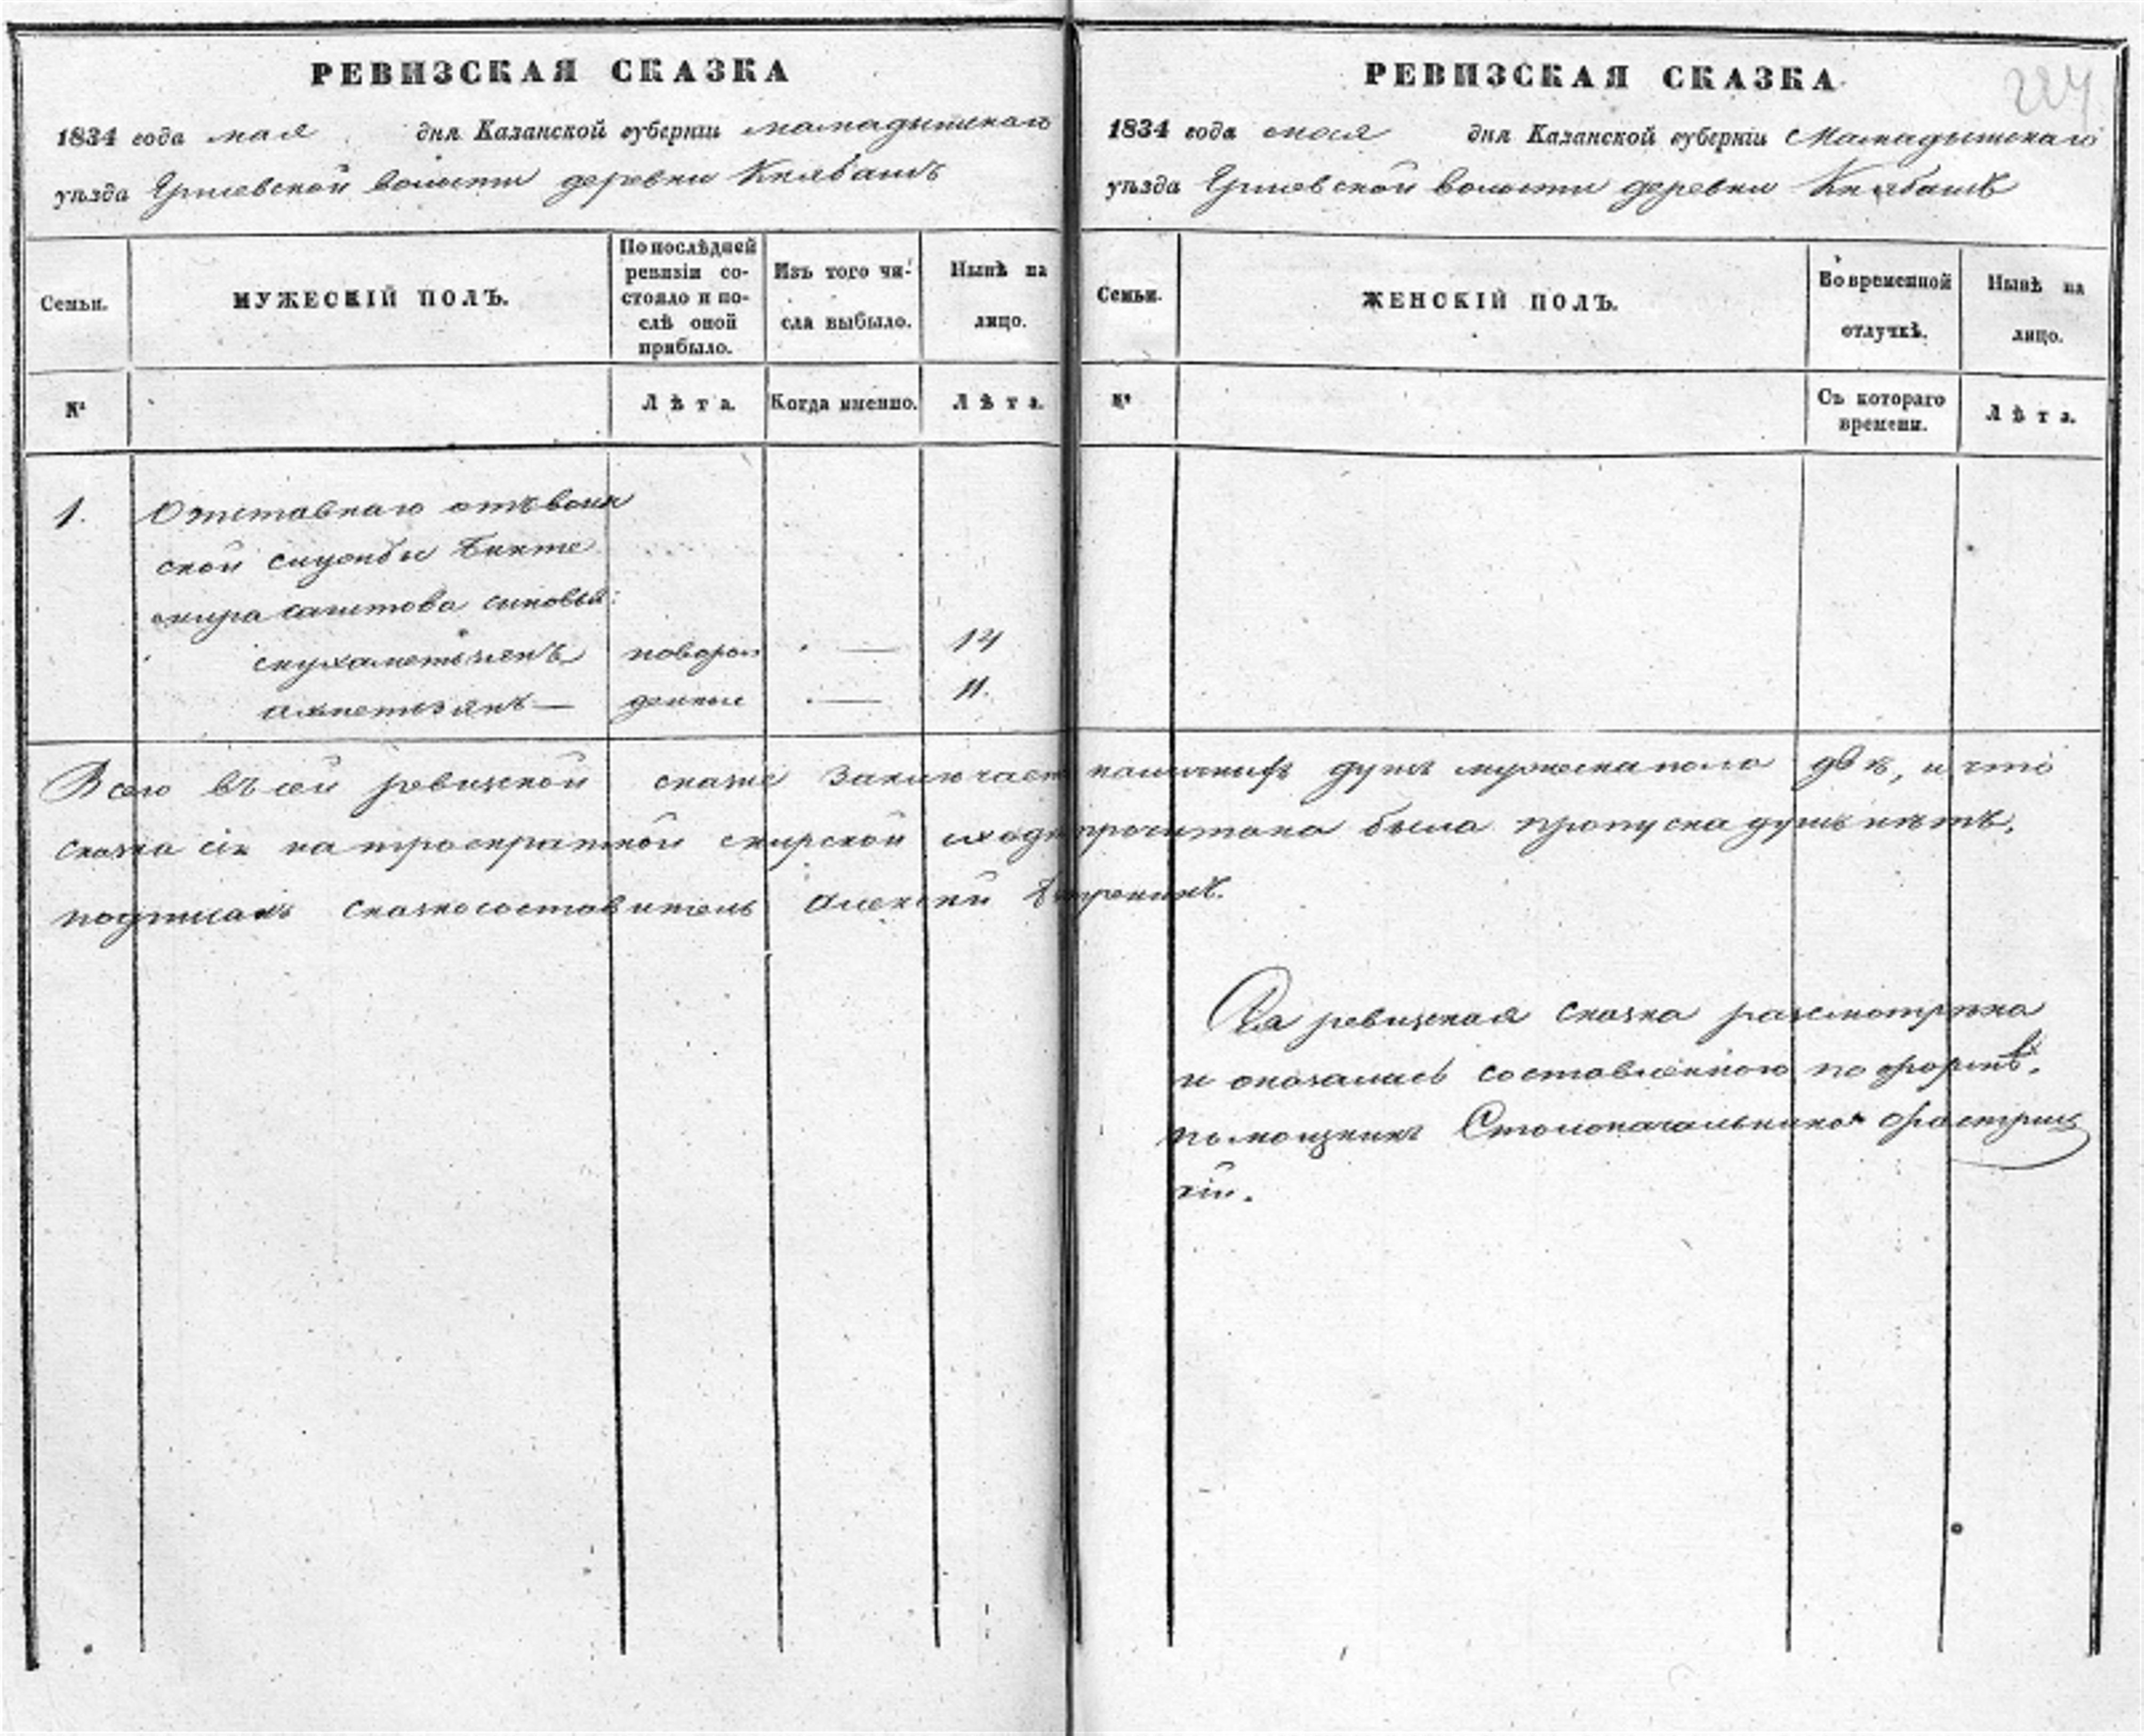 РЕВИЗСКАЯ СКАЗКА
1834 года мая дня Казанской губерніи мамадышскаго
уѣзда волости деревни
Семьи.
МУЖЕСКІЙ ПОЛЪ.
По послѣдней
ревизіи со-
стояло и по-
слѣ оной
прибыло.
Изъ того чи-
сла выбыло.
Нынѣ на
лицо.
№
Лѣта.
Когда именно.
Лѣта.
1.
Отставнаго отъ воин
ской службы Бикте
мира сыновья:
мухаметзянъ поворож 14
ахметзянъ — денные 11.
РЕВИЗСКАЯ СКАЗКА
1834 года мая дня Казанской губерніи Мамадышскаго
уѣзда волости деревни
Семьи.
ЖЕНСКІЙ ПОЛЪ.
Во временной
отлучкѣ.
Нынѣ на
лицо.
№
Съ котораго
времени.
Лѣта.
Всего въ сей ревизской сказке заключает наличных душъ мужеска пола двѣ, и что
сказка сія на троекратной мирской сходѣ прочитана была пропуска душъ нѣтъ.
подписалъ сказкосоставитель Алексѣй
Сія ревизская сказка разсмотрѣна
и оказалась составленною по формѣ.
помощникъ Столоначальника